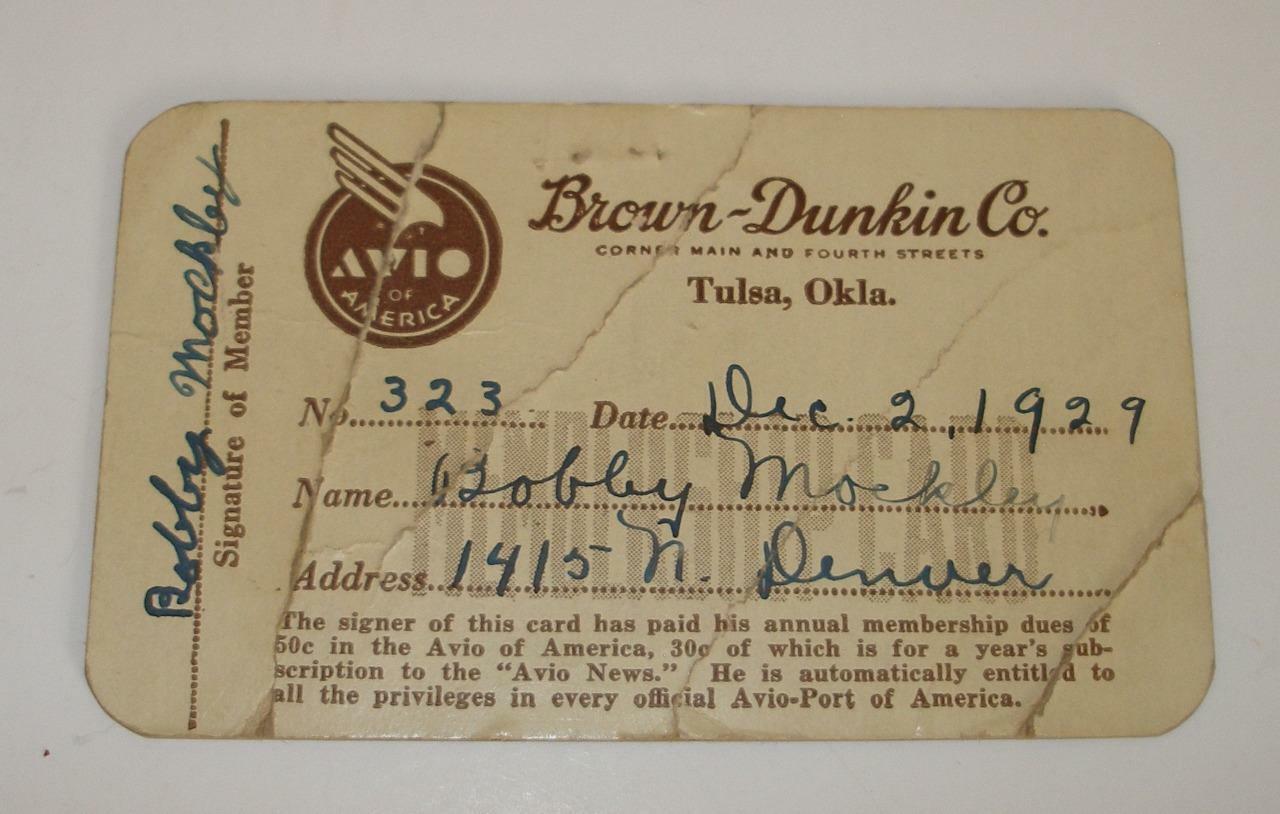 Bobby Mockley
Signature of Member
AVIO
OF
AMERICA
Brown-Dunkin Co.
CORNER MAIN AND FOURTH STREETS
Tulsa, Okla.
No. 323 Date Dec. 2, 1929
Name Bobby Mockley
Address 1415 N. Denver
MEMBERSHIP CARD
The signer of this card has paid his annual membership dues of
50c in the Avio of America, 30c of which is for a year's sub-
scription to the "Avio News." He is automatically entitled to
all the privileges in every official Avio-Port of America.